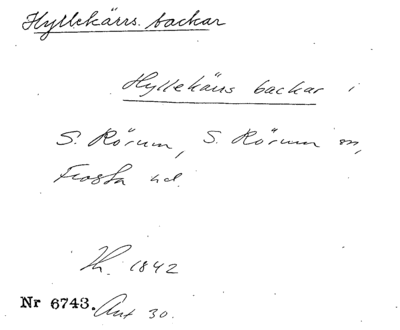 Hyllekärrs backar
Hyllekärrs backar i
S. Rörum, S. Rörum sn,
Frosta hd.
Kr. 1842
Nr 6743. Ant 30.